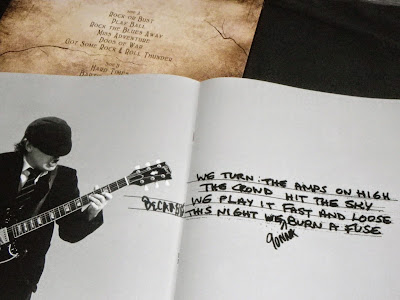 SIDE A
ROCK OR BUST
PLAY BALL
ROCK THE BLUES AWAY
MISS ADVENTURE
DOGS OF WAR
GOT SOME ROCK & ROLL THUNDER
HARD TIMES
WE TURN THE AMPS ON HIGH
THE CROWD HIT THE SKY
BECAUSE WE PLAY IT FAST AND LOOSE
THIS NIGHT WE, BURN A FUSE